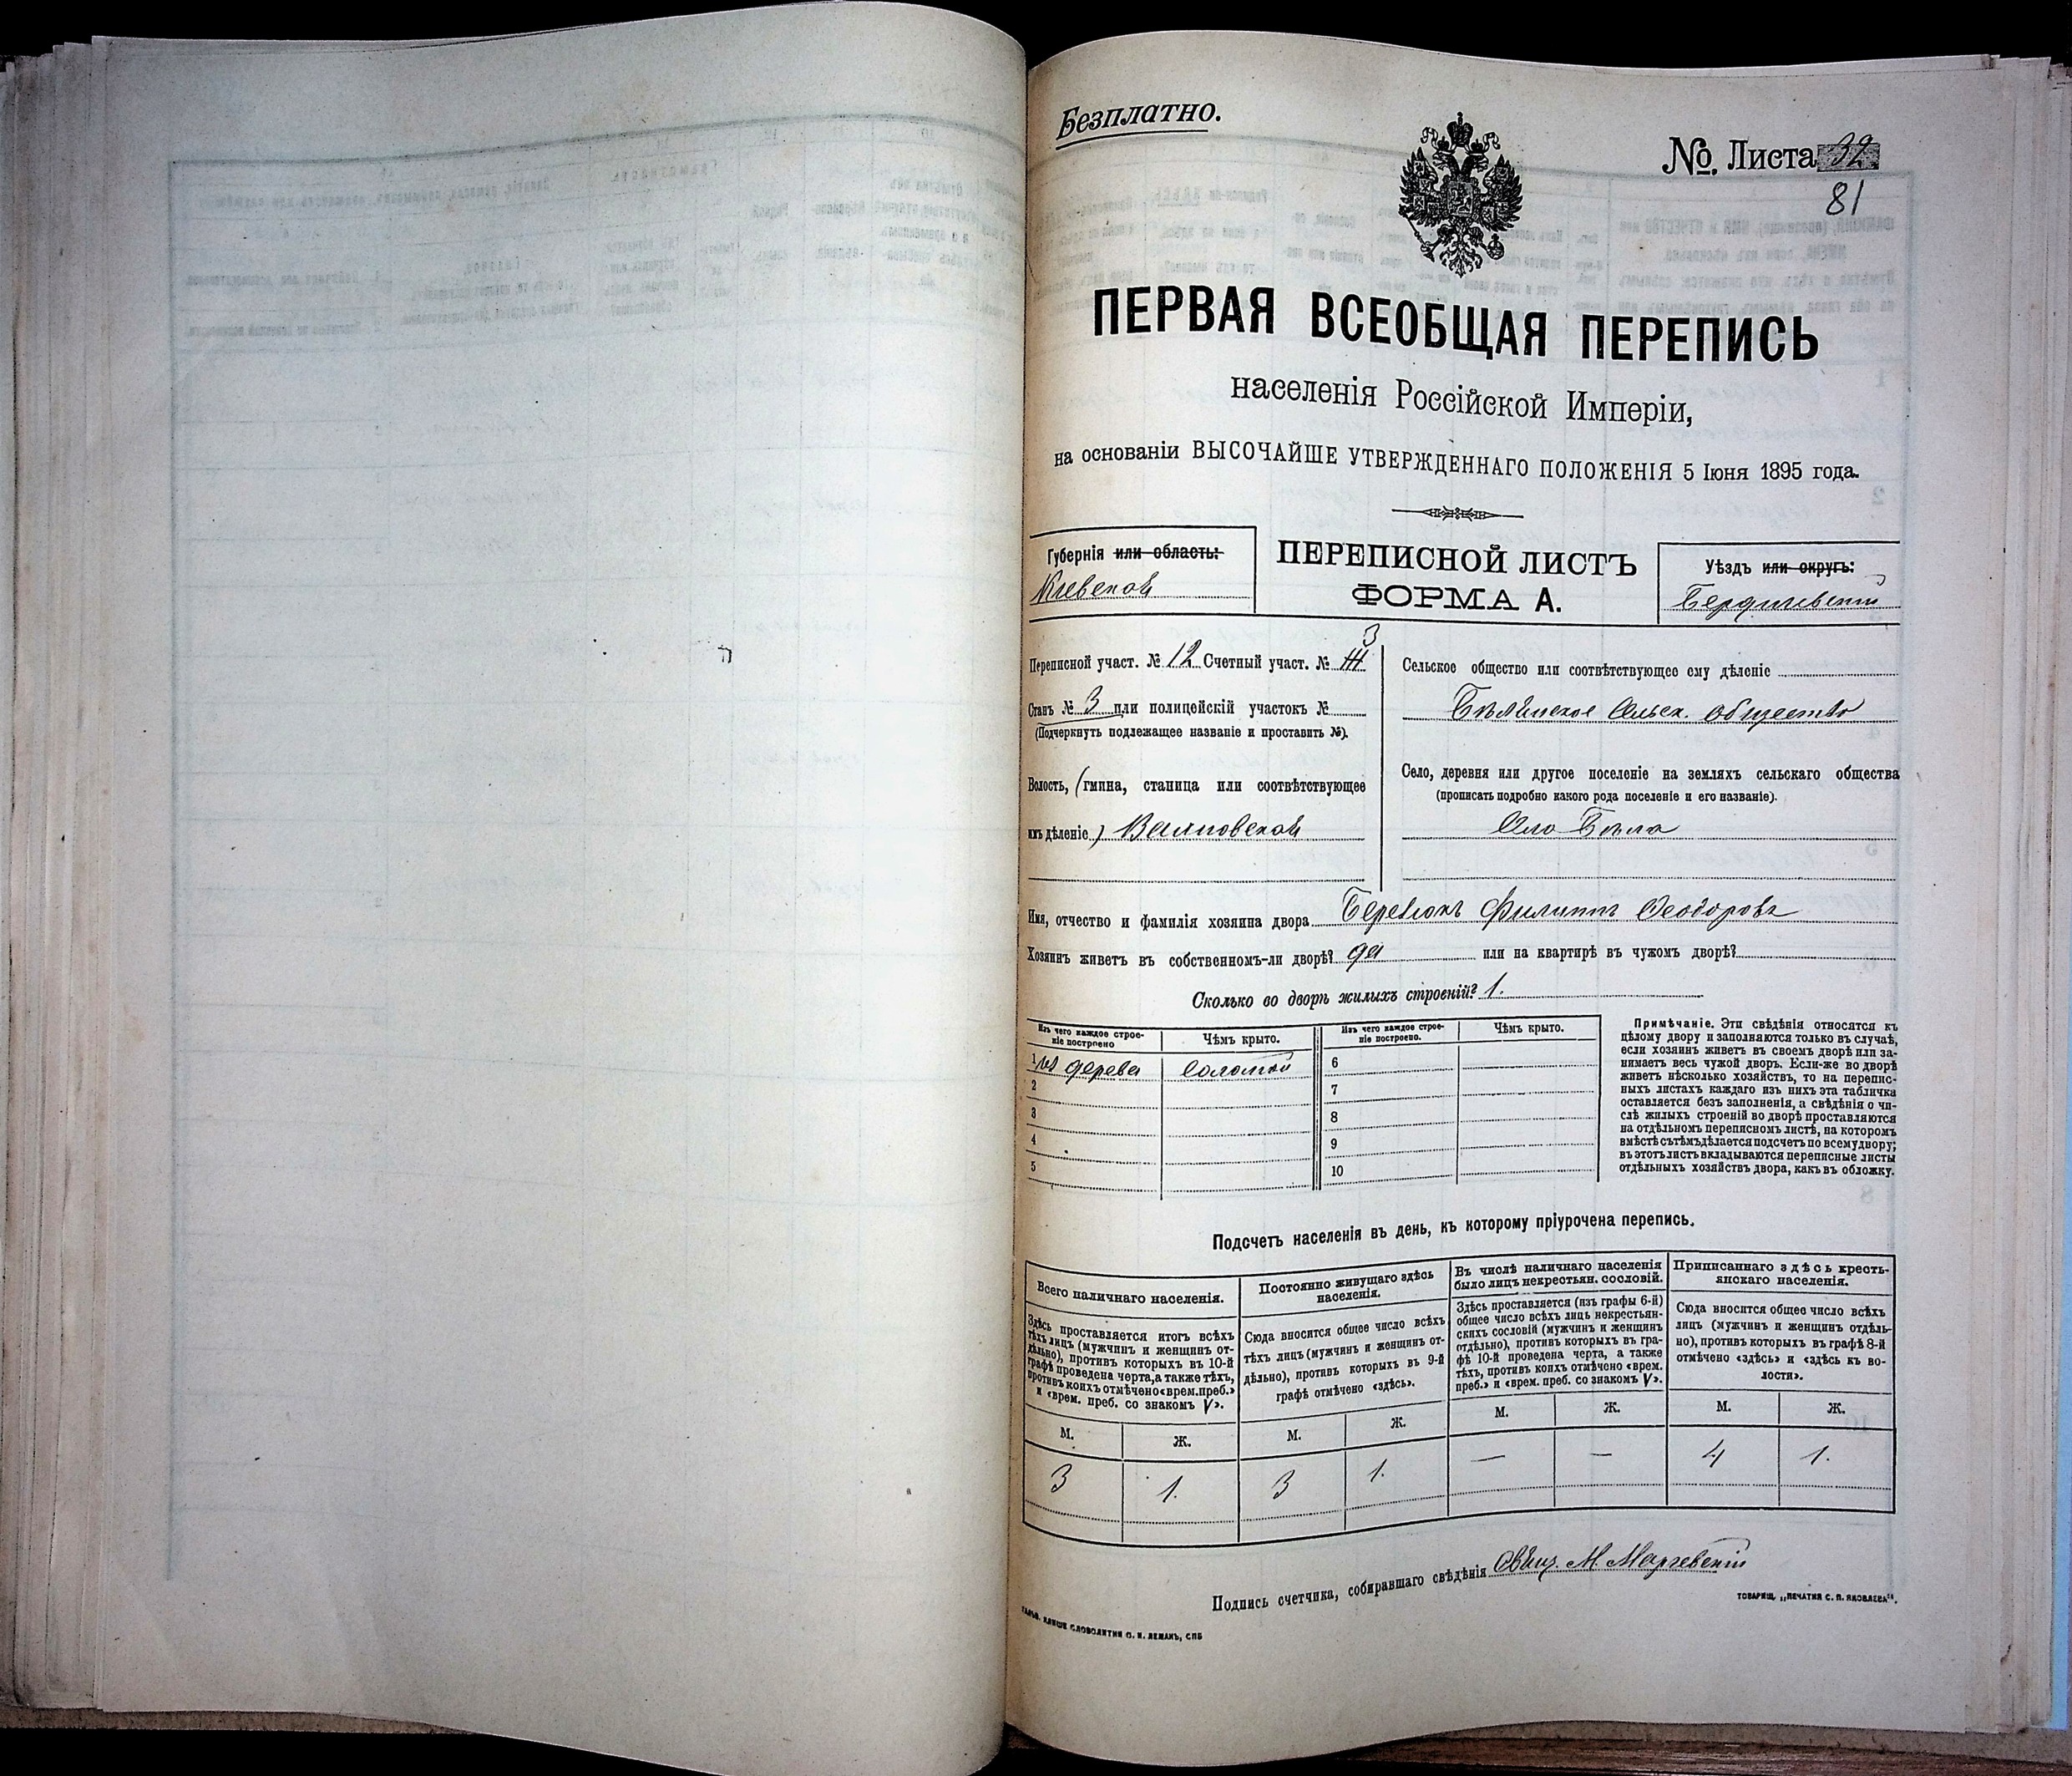 Безплатно.
№ Листа 32
81
ПЕРВАЯ ВСЕОБЩАЯ ПЕРЕПИСЬ
населенія Россійской Имперіи,
на основаніи ВЫСОЧАЙШЕ УТВЕРЖДЕННАГО ПОЛОЖЕНІЯ 5 Іюня 1895 года.
Губернія или область:
Кіевская
ПЕРЕПИСНОЙ ЛИСТЪ
ФОРМА А.
Уѣздъ или округъ:
Бердичевскій
3
Переписной участ. № 12 Счетный участ. №
Станъ № 3 или полицейскій участокъ №
(Подчеркнуть подлежащее названіе и проставить №).
Волость, (гмина, станица или соотвѣтствующее
имъ дѣленіе)
Сельское общество или соотвѣтствующее ему дѣленіе
Бѣлянское Сельск. общество
Село, деревня или другое поселеніе на земляхъ сельскаго общества
(прописать подробно какого рода поселеніе и его названіе).
Село Бѣла
Имя, отчество и фамилія хозяина двора Филиппъ Ѳеодоровъ
Хозяинъ живетъ въ собственномъ-ли дворѣ? да или на квартирѣ въ чужомъ дворѣ?
Сколько во дворѣ жилыхъ строеній? 1.
Изъ чего каждое строе-
ніе построено
Чѣмъ крыто.
1 изъ дерева соломой
2
3
4
5
Изъ чего каждое строе-
ніе построено.
Чѣмъ крыто.
6
7
8
9
10
Примѣчаніе. Эти свѣдѣнія относятся къ
цѣлому двору и заполняются только въ случаѣ,
если хозяинъ живетъ въ своемъ дворѣ или за-
нимаетъ весь чужой дворъ. Если-же во дворѣ
живетъ нѣсколько хозяйствъ, то на перепис-
ныхъ листахъ каждаго изъ нихъ эта табличка
оставляется безъ заполненія, а свѣдѣнія о чи-
слѣ жилыхъ строеній во дворѣ проставляются
на отдѣльномъ переписномъ листѣ, на которомъ
вмѣстѣ съ тѣмъ дѣлается подсчетъ по всему двору;
въ этотъ листъ вкладываются переписные листы
отдѣльныхъ хозяйствъ двора, какъ въ обложку.
Подсчетъ населенія въ день, къ которому пріурочена перепись.
Всего наличнаго населенія.
Здѣсь проставляется итогъ всѣхъ
тѣхъ лицъ (мужчинъ и женщинъ от-
дѣльно), противъ которыхъ въ 10-й
графѣ проведена черта, а также тѣхъ,
противъ коихъ отмѣчено «врем. преб.»
и «врем. преб. со знакомъ V».
М. Ж.
3 1.
Постоянно живущаго здѣсь
населенія.
Сюда вносится общее число всѣхъ
тѣхъ лицъ (мужчинъ и женщинъ от-
дѣльно), противъ которыхъ въ 9-й
графѣ отмѣчено «здѣсь».
М. Ж.
3 1.
Въ числѣ наличнаго населенія
было лицъ некрестьян. сословій.
Здѣсь проставляется (изъ графы 6-й)
общее число всѣхъ лицъ некрестьян-
скихъ сословій (мужчинъ и женщинъ
отдѣльно), противъ которыхъ въ гра-
фѣ 10-й проведена черта, а также
тѣхъ, противъ коихъ отмѣчено «врем.
преб.» и «врем. преб. со знакомъ V».
М. Ж.
— —
Приписаннаго здѣсь кресть-
янскаго населенія.
Сюда вносится общее число всѣхъ
лицъ (мужчинъ и женщинъ отдѣль-
но), противъ которыхъ въ графѣ 8-й
отмѣчено «здѣсь» и «здѣсь къ во-
лости».
М. Ж.
4 1.
Подпись счетчика, собиравшаго свѣдѣнія
СЛОВОЛИТНИ О. И. ЛЕМАНЪ, СПБ
ТОВАРИЩ. „ПЕЧАТНЯ С. П. ЯКОВЛЕВА“.